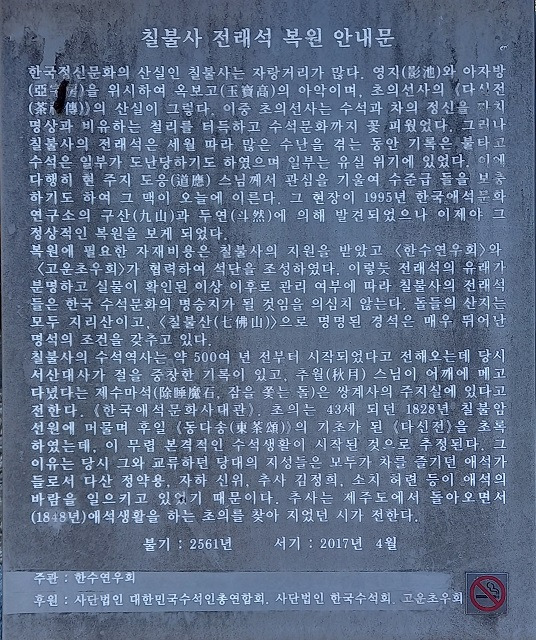 칠불사 전래석 복원 안내문
한국정신문화의 산실인 칠불사는 자랑거리가 많다. 영지(影池)와 아자방
(亞字房)을 위시하여 옥보고(玉寶高)의 아악이며, 초의선사의 《다신전
(茶神傳)》의 산실이 그렇다. 이중 초의선사는 수석과 차의 정신을 가치
명상과 비유하는 철리를 터득하고 수석문화까지 꽃 피웠었다. 그러나
칠불사의 전래석은 세월 따라 많은 수난을 겪는 동안 기록은 불타고
수석은 일부가 도난당하기도 하였으며 일부는 유실 위기에 있었다. 이에
다행히 현 주지 도응(道應) 스님께서 관심을 기울여 수준급 돌을 보충
하기도 하여 그 맥이 오늘에 이른다. 그 현장이 1995년 한국애석문화
연구소의 구산(九山)과 두연(斗然)에 의해 발견되었으나 이제야 그
정상적인 복원을 보게 되었다.
복원에 필요한 자재비용은 칠불사의 지원을 받았고 〈한수연우회〉와
〈고운초우회〉가 협력하여 석단을 조성하였다. 이렇듯 전래석의 유래가
분명하고 실물이 확인된 이상 이후로 관리 여부에 따라 칠불사의 전래석
들은 한국 수석문화의 명승지가 될 것임을 의심치 않는다. 돌들의 산지는
모두 지리산이고, 〈칠불산(七佛山)〉으로 명명된 경석은 매우 뛰어난
명석의 조건을 갖추고 있다.
칠불사의 수석역사는 약 500여 년 전부터 시작되었다고 전해오는데 당시
서산대사가 절을 중창한 기록이 있고, 추월(秋月) 스님이 어깨에 메고
다녔다는 제수마석(除睡魔石, 잠을 쫓는 돌)은 쌍계사의 주지실에 있다고
전한다. 《한국애석문화사대관》. 초의는 43세 되던 1828년 칠불암
선원에 머물며 후일 《동다송(東茶頌)》의 기초가 된 《다신전》을 초록
하였는데, 이 무렵 본격적인 수석생활이 시작된 것으로 추정된다. 그
이유는 당시 그와 교류하던 당대의 지성들은 모두가 차를 즐기던 애석가
들로서 다산 정약용, 자하 신위, 추사 김정희, 소치 허련 등이 애석의
바람을 일으키고 있었기 때문이다. 추사는 제주도에서 돌아오면서
(1848년)애석생활을 하는 초의를 찾아 지었던 시가 전한다.
불기 : 2561년 서기 : 2017년 4월
주관 : 한수연우회
후원 : 사단법인 대한민국수석인총연합회, 사단법인 한국수석회, 고운초우회